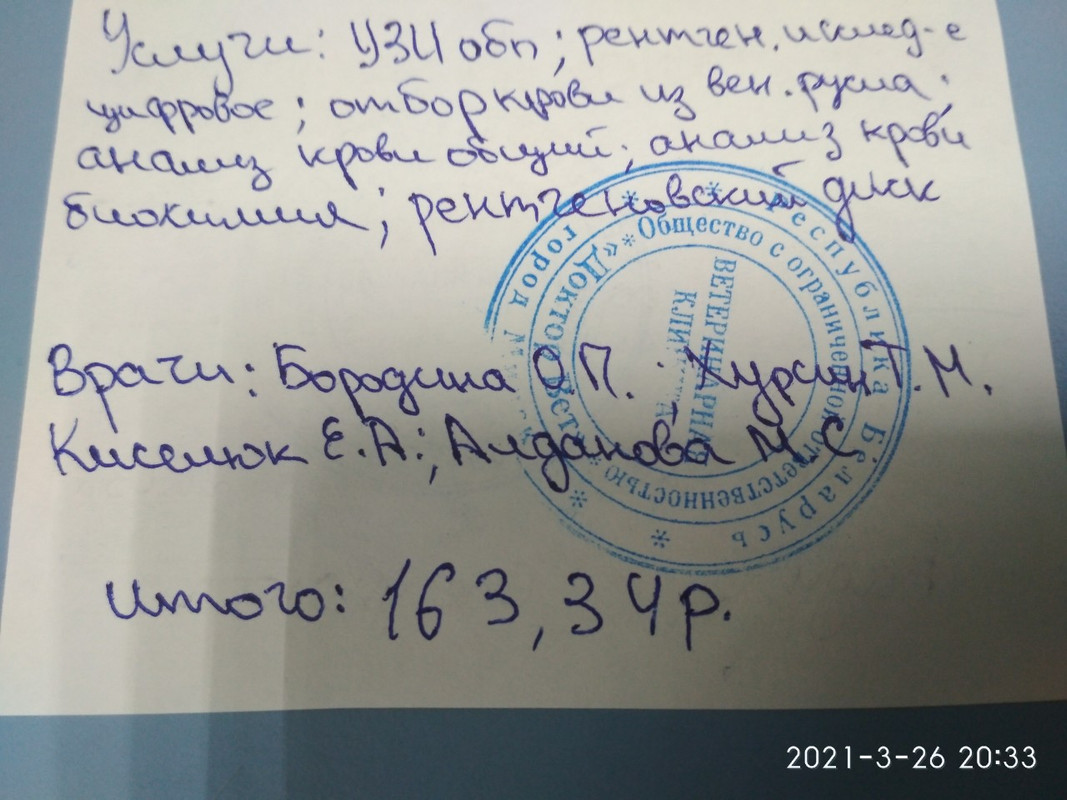 Услуги: УЗИ обп; рентген. исслед-е
цифровое; отбор крови из вен. русла;
анализ крови общий; анализ крови
биохимия; рентгеновский диск
Врачи: Бородина О.П.; Хурсин Т.М.
Киселюк Е.А.; Алданова М.С.
итого: 163,34р.
* Республика Беларусь *
город
* Общество с ограниченной ответственностью *
«Доктор Вет»
ВЕТЕРИНАРНАЯ
КЛИНИКА
2021-3-26 20:33